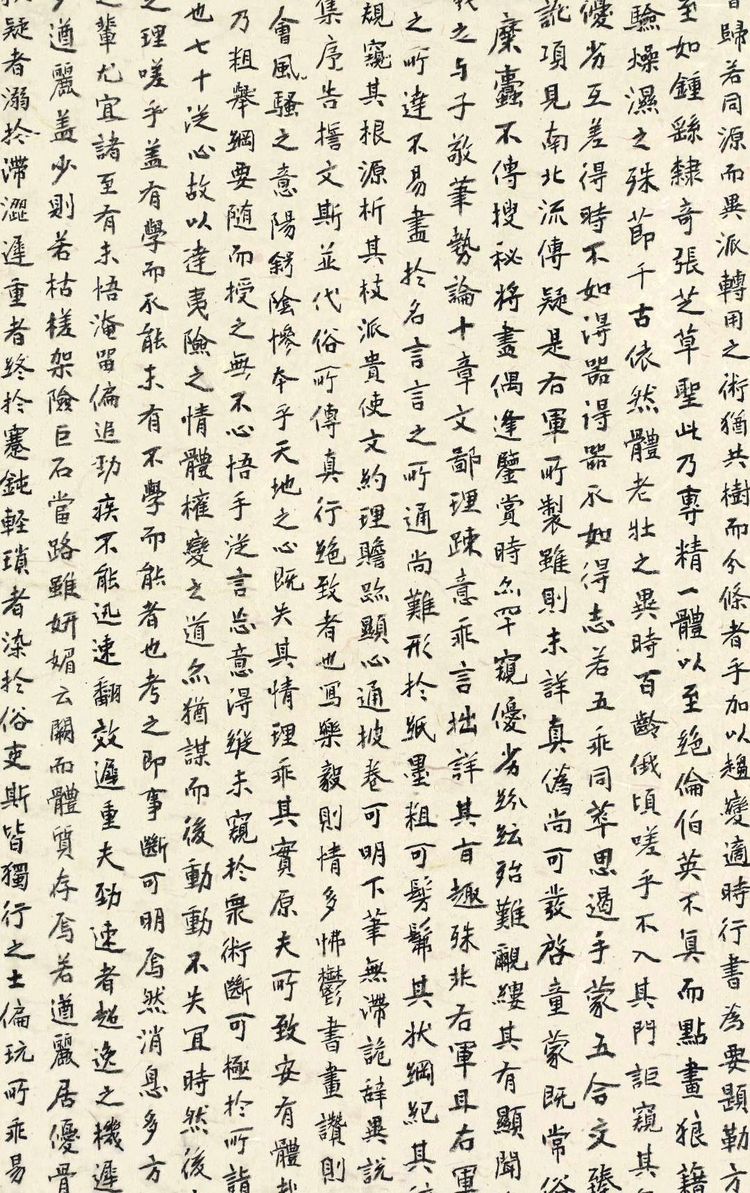 歸若同源而異派轉用之術猶共樹而分條者乎加以趨變適時行書為要題勒方
至如鍾繇隸奇張芝草聖此乃專精一體以至絕倫伯英不真而點畫狼藉
驗燥濕之殊節千古依然體老壯之異時百齡俄頃嗟乎不入其門詎窺其
優劣互差得時不如得器得器不如得志若五乖同萃思遏手蒙五合交臻
訛項見南北流傳疑是右軍所製雖則未詳真偽尚可發啓童蒙既常俗
糜蠹不傳搜秘將盡偶逢鑒賞時亦罕窺優劣紛紜殆難覼縷其有顯聞
羲之与子敬筆勢論十章文鄙理疎意乖言拙詳其旨趣殊非右軍且右軍
之所達不易盡於名言言之所通尚難形於紙墨粗可髣髴其狀綱紀其
規窺其根源析其枝派貴使文約理贍跡顯心通披卷可明下筆無滯詭辞異説
集序告誓文斯並代俗所傳真行絕致者也寫樂毅則情多怫鬱書畫讚則
會風騷之意陽舒陰慘本乎天地之心既失其情理乖其實原夫所致安有體
乃粗舉綱要随而授之無不心悟手従言忘意得縱未窺於衆術斷可極於所詣
也七十従心故以達夷險之情體權變之道亦猶謀而後動動不失宜時然後
之理嗟乎蓋有學而不能未有不學而能者也考之即事斷可明焉然消息多方
之輩尤宜諸至有未悟淹留偏追勁疾不能迅速翻效遲重夫勁速者超逸之機遲
多遒麗蓋少則若枯槎架險巨石當路雖妍媚云闕而體質存焉若遒麗居優骨
疑者溺於滯澀遲重者終於蹇鈍軽瑣者染於俗吏斯皆獨行之士偏玩所乖易